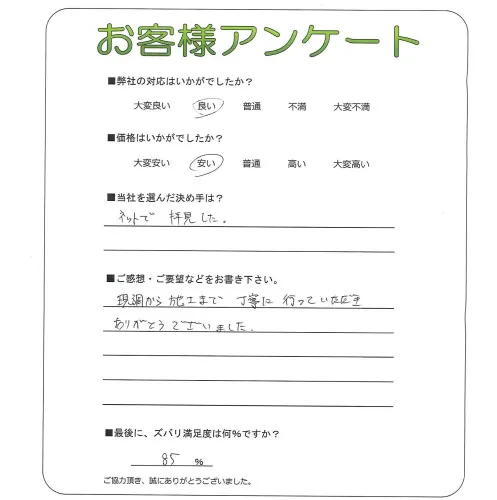 お客様アンケート
■弊社の対応はいかがでしたか？
大変良い 良い 普通 不満 大変不満
■価格はいかがでしたか？
大変安い 安い 普通 高い 大変高い
■当社を選んだ決め手は？
ネットで 拝見した。
■ご感想・ご要望などをお書き下さい。
現調から 施工まで 丁寧に 行っていただき
ありがとうございました。
■最後に、ズバリ満足度は何%ですか？
85 %
ご協力頂き、誠にありがとうございました。